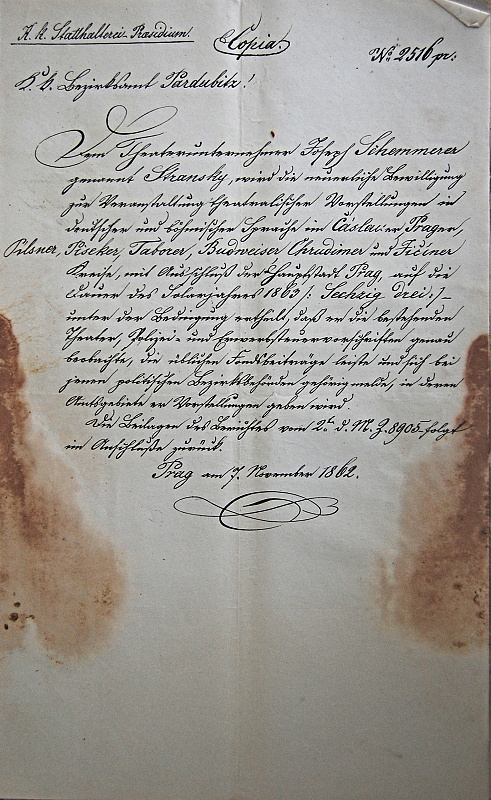 K. k. Statthalterei-Praesidium.
Copia.
No. 2516 pr:
K. k. Bezirksamt Pardubitz!
Dem Theaterunternehmer Joseph Schemmerer
genannt Stransky, wird die neuerliche Bewilligung
zur Veranstaltung theatralischer Vorstellungen in
deutscher und böhmischer Sprache im Čáslauer, Prager,
Pilsner, Piseker, Taborer, Budweiser Chrudimer und Jičiner
Kreise, mit Ausschluß der Hauptstadt Prag, auf die
Dauer des Solarjahres 1863 /: Sechzig drei :/ –
unter der Bedingung ertheilt, daß er die bestehenden
Theater, Polizei- und Erwerbsteuervorschriften genau
beobachte, die üblichen Fondsbeiträge leiste und sich bei
jenen politischen Bezirksbehörden gehörig melde, in deren
Amtsgebiete er Vorstellungen geben wird.
Die Beilagen des Berichtes vom 2ten d. M. Z. 8905 folgt
im Anschluße zurück.
Prag am 7. November 1862.